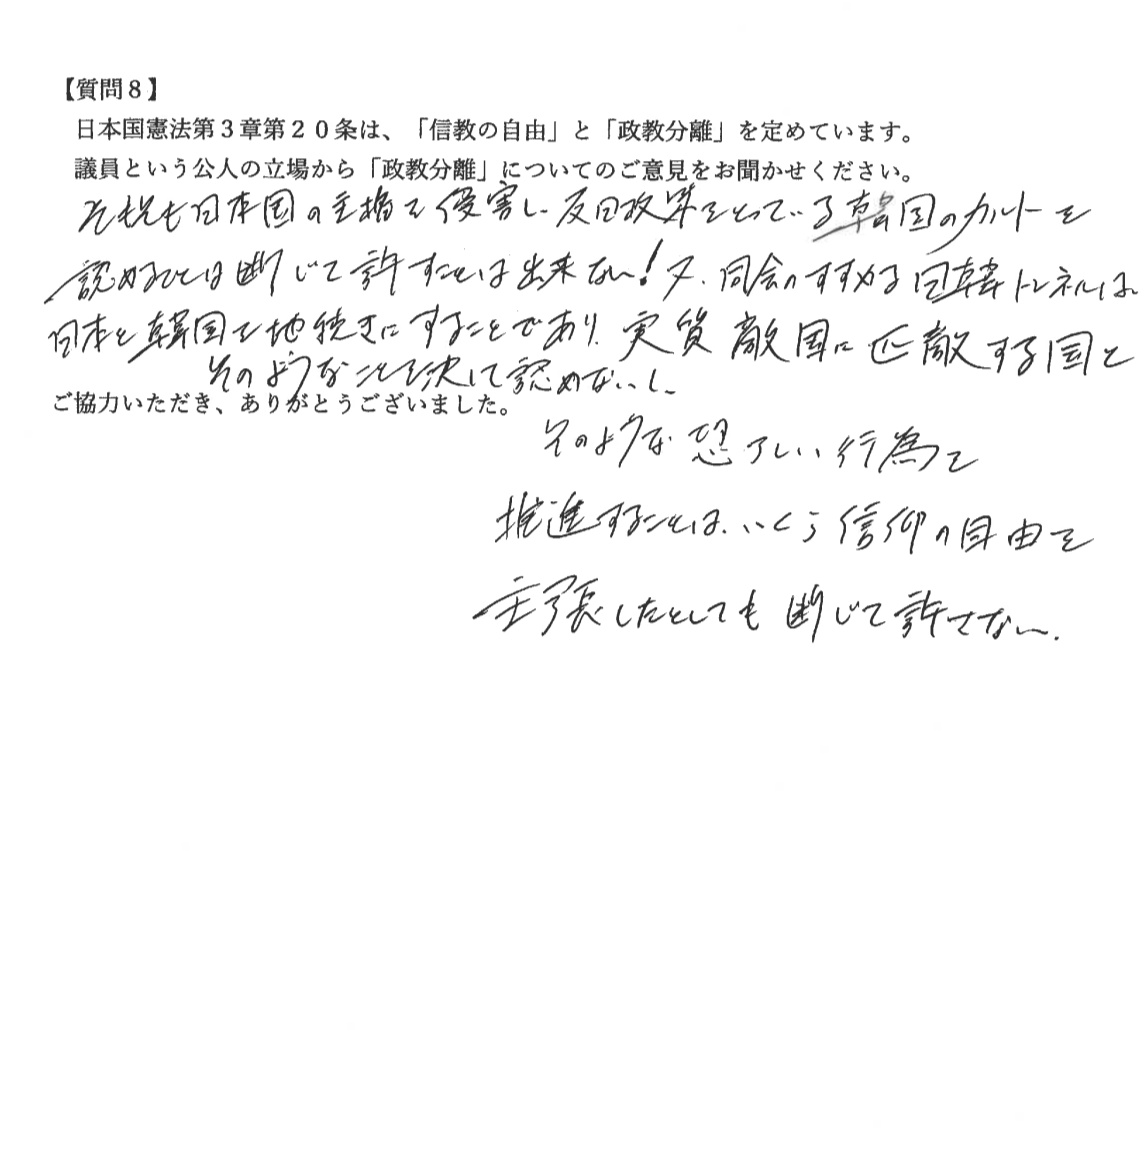 【質問８】
日本国憲法第３章第２０条は、「信教の自由」と「政教分離」を定めています。
議員という公人の立場から「政教分離」についてのご意見をお聞かせください。
そもそも日本国の主権を侵害し、反日政策をとっている韓国のカルトを
認めることは断じて許すことは出来ない！又、同会のすすめる日韓トンネルは、
日本と韓国を地続きにすることであり、実質敵国に匹敵する国と
そのようなことを決して認めないし、
ご協力いただき、ありがとうございました。
そのような恐ろしい行為を
推進することは、いくら信仰の自由を
主張したとしても断じて許さない。